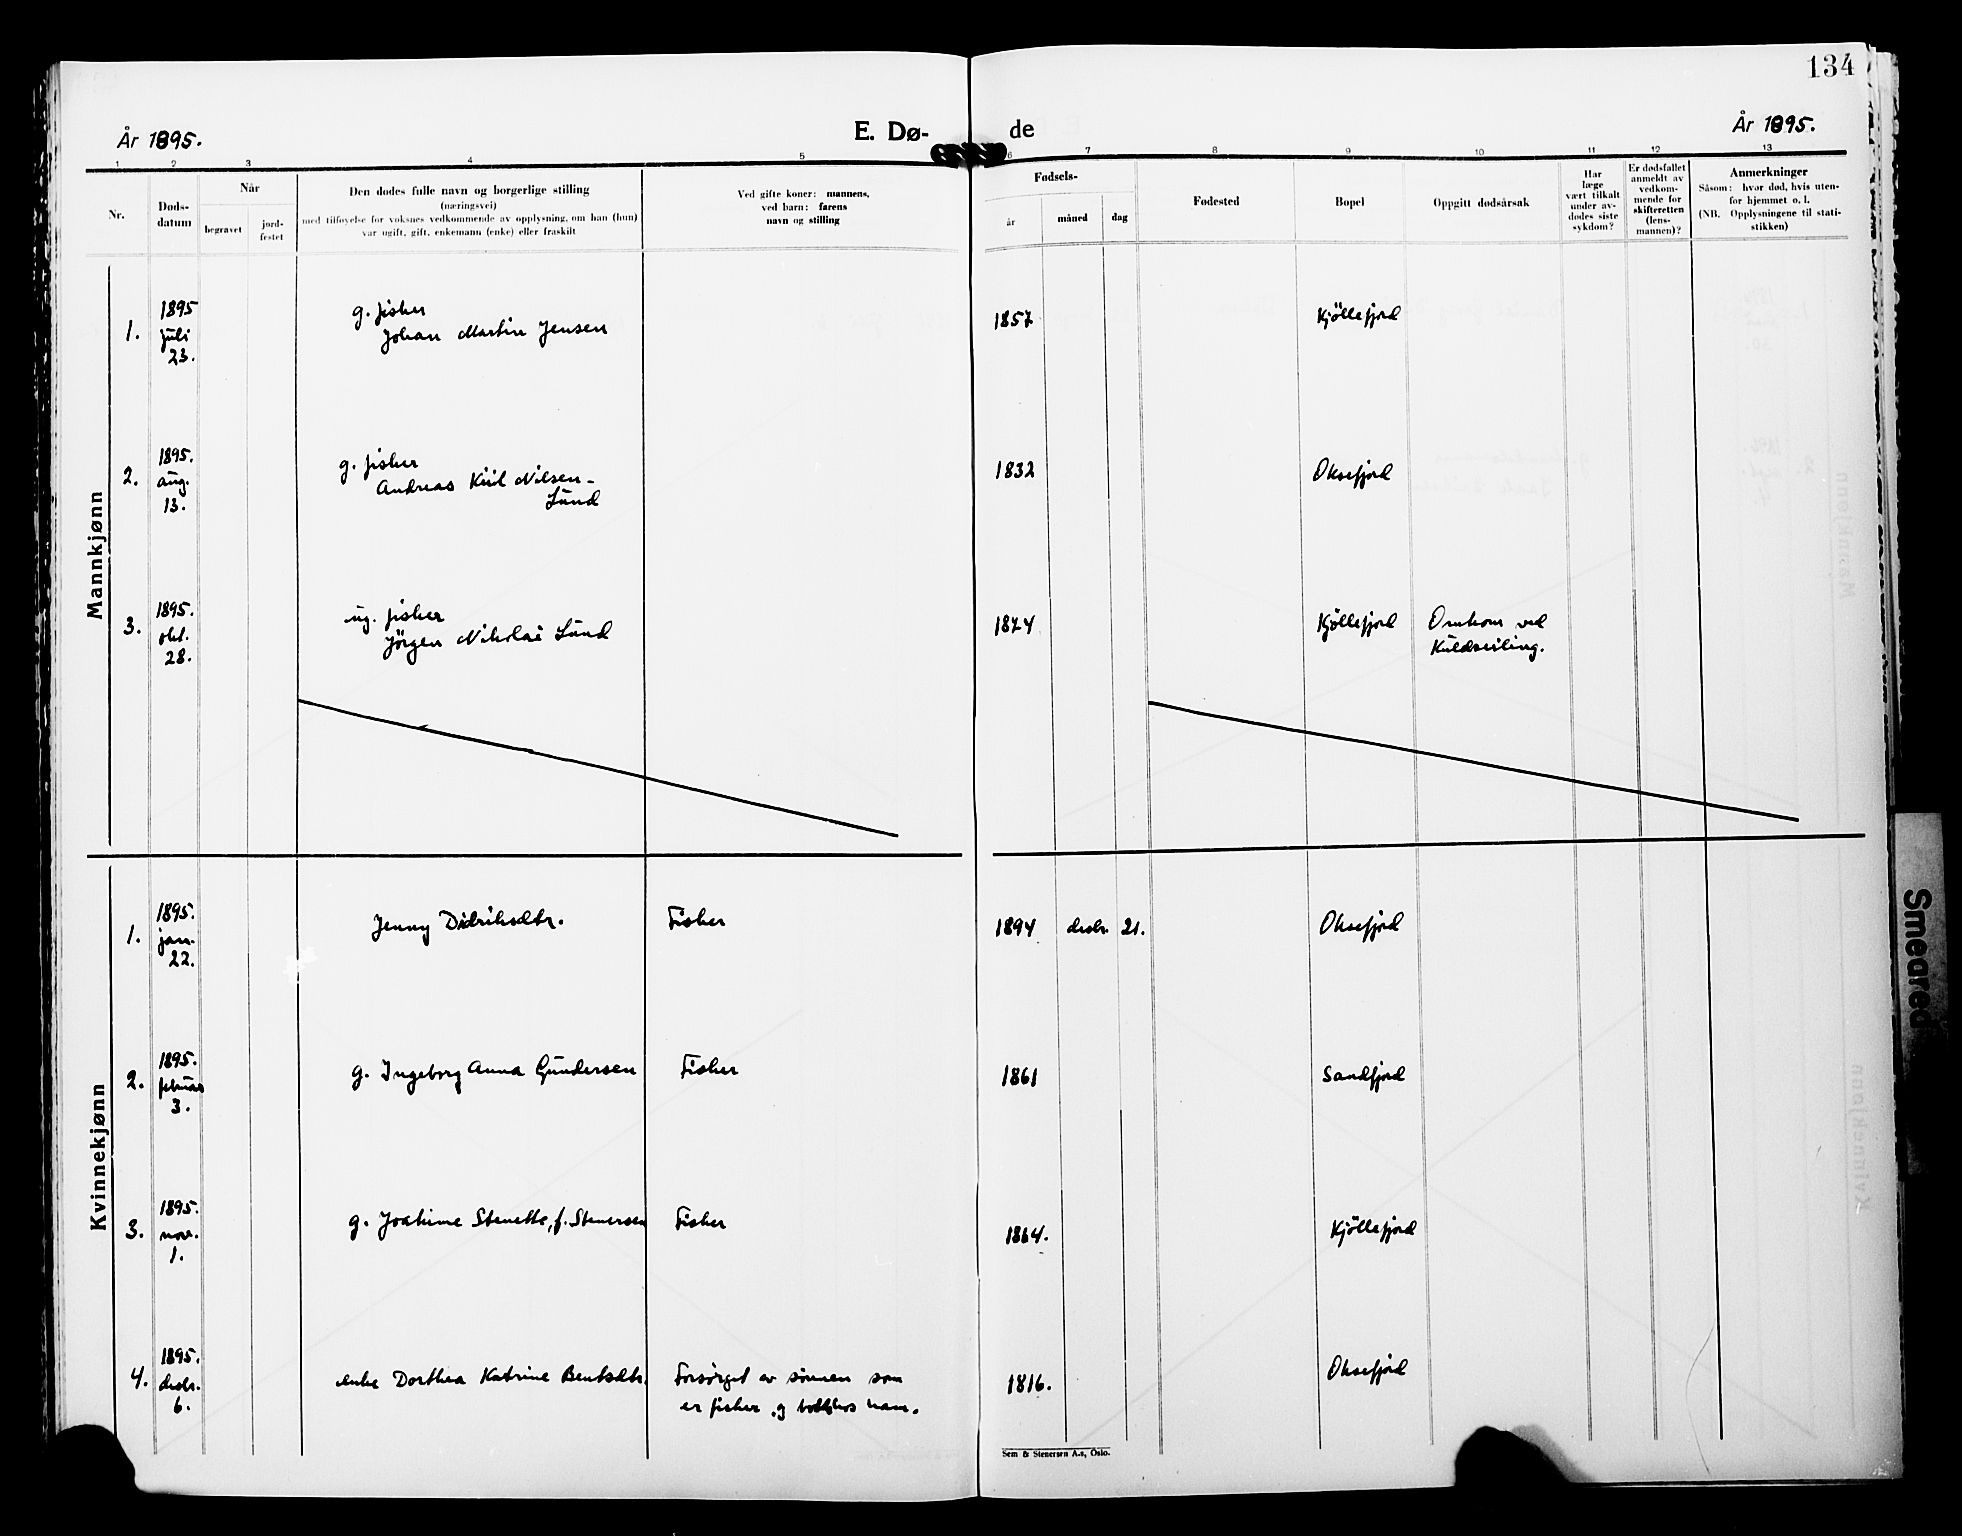 134
År 1895.
E. Dø-
de
År 1895.
1 2 3 4 5 6 7 8 9 10 11 12 13
Nr.
Døds-
datum
Når
begravet
jord-
festet
Den dødes fulle navn og borgerlige stilling
(næringsvei)
med tilføyelse for voksnes vedkommende av opplysning, om han (hun)
var ugift, gift, enkemann (enke) eller fraskilt
Ved gifte koner: mannens,
ved barn: farens
navn og stilling
Fødsels-
år
måned
dag
Fødested
Bopel
Oppgitt dødsårsak
Har
læge
vært tilkalt
under av-
dødes siste
sykdom?
Er dødsfallet
anmeldt av
vedkom-
mende for
skifteretten
(lens-
mannen)?
Anmerkninger
Såsom: hvor død, hvis uten-
for hjemmet o. l.
(NB. Opplysningene til stati-
stikken)
Mannkjønn
1.
1895
juli
23.
g. fisker
Johan Martin Jensen
1857
Kjöllefjord
2.
1895.
aug.
13.
g. fisker
Andreas Kiil Nilsen-
Lund
1832
Oksefjord
3.
1895.
okt.
28.
ug. fisker
Jörgen Nikolai Lund
1874
Kjöllefjord
Omkom ved
Kuldseiling.
Kvinnekjønn
1.
1895.
jan.
22.
Jenny Didriksdtr.
Fisker
1894 desbr. 21.
Oksefjord
2.
1895.
februar
3.
g. Ingeborg Anna Gundersen
Fisker
1861
Sandfjord
3.
1895.
nov.
1.
g. Joakime Stenette, f. Stenersen
Fisker
1864.
Kjöllefjord
4.
1895.
desbr.
6.
enke Dorthea Katrine Bentsdtr.
Forsörget av sönnen som
er fisker og hos ham.
1816.
Oksefjord
Sem & Stenersen A.s, Oslo.
Smeared